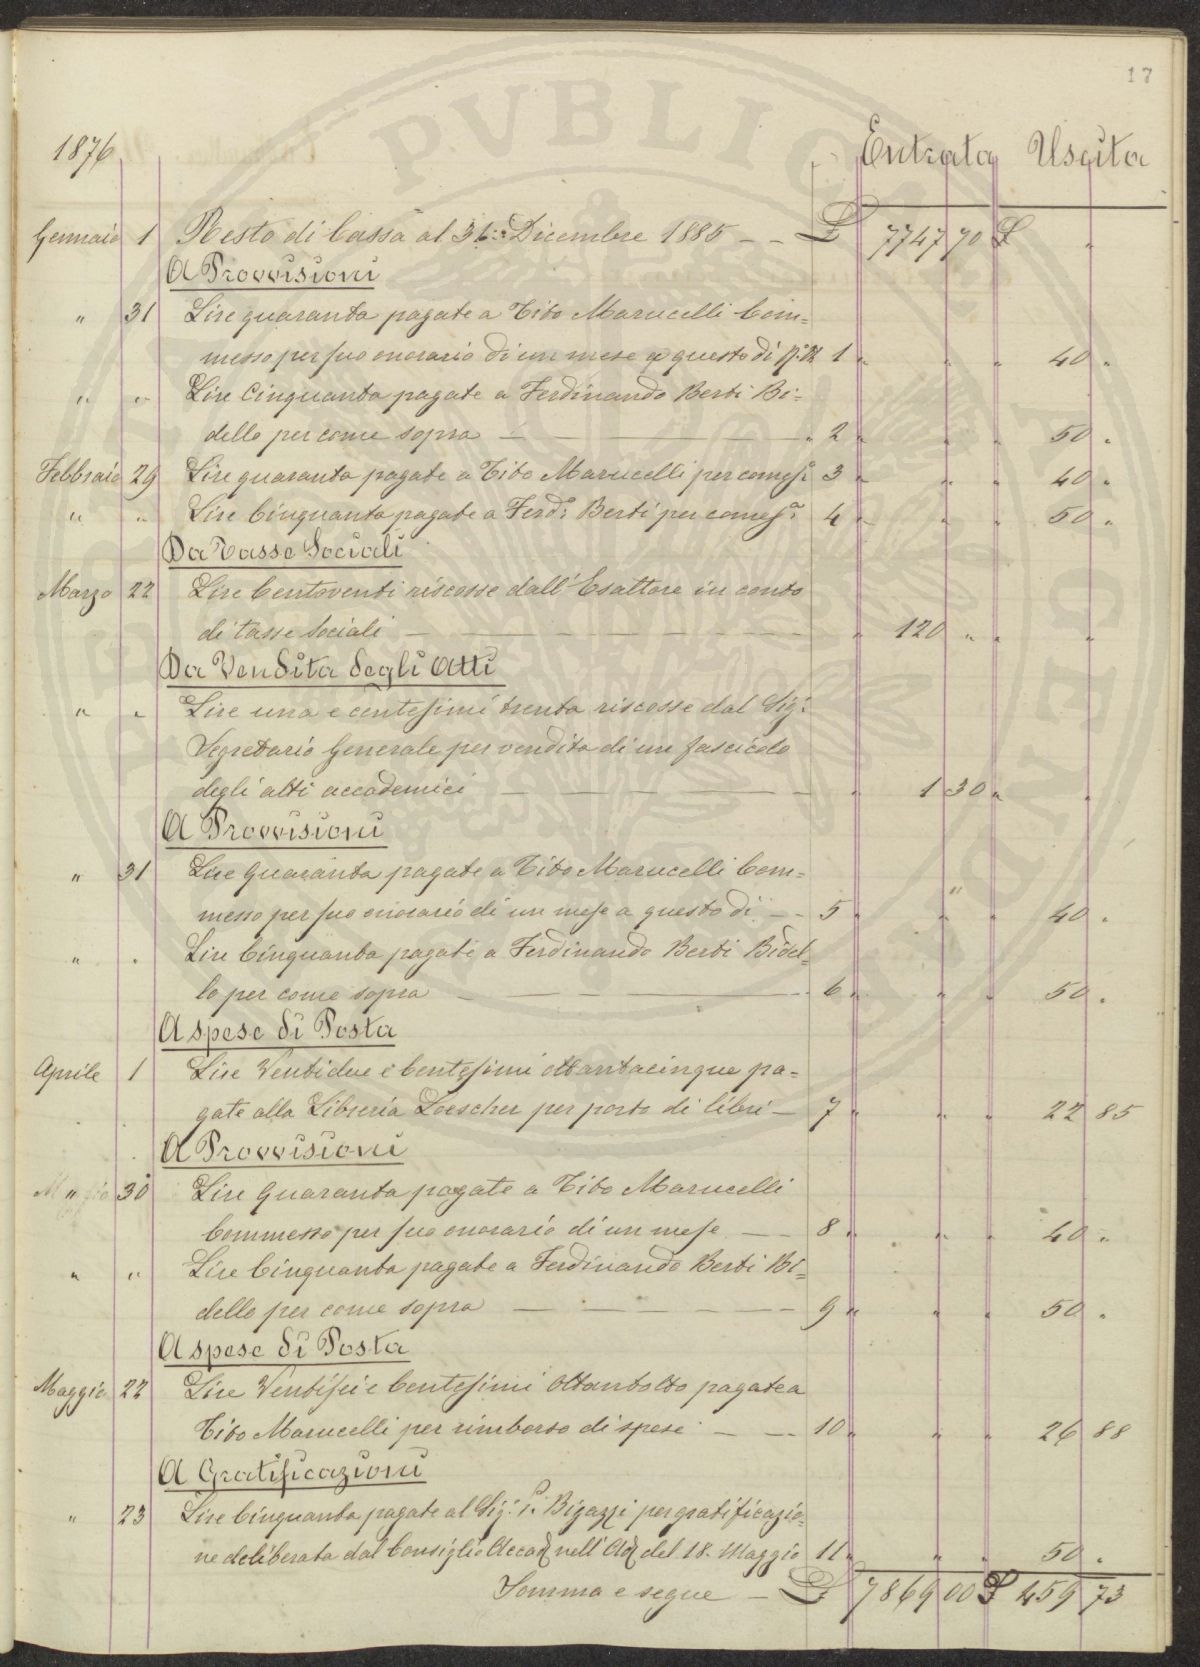 17
1876 Entrata Uscita
Gennaio 1 Resto di Cassa al 31: Dicembre 1885 — — £ 7747 70 £ "
A Provvisioni
" 31 Lire quaranta pagate a Tito Marucelli Com=
messo per suo onorario di un mese a questo dì 1 " " " 40 "
" " Lire Cinquanta pagate a Ferdinando Berti Bi=
dello per come sopra — — — — 2 " " " 50 "
Febbraio 29 Lire quaranta pagate a Tito Marucelli per come s.a 3 " " " 40 "
" " Lire Cinquanta pagate a Ferd.o Berti per come s.a 4 " " " 50 "
Da Tasse Sociali
Marzo 22 Lire Centoventi riscosse dall'Esattore in conto
di tasse Sociali — — — — " 120 " " "
Da Vendita degli Atti
" " Lire una e centesimi trenta riscosse dal Sig.r
Segretario Generale per vendita di un fascicolo
degli atti accademici — — — — " 1 30 " "
A Provvisioni
" 31 Lire Quaranta pagate a Tito Marucelli Com=
messo per suo onorario di un mese a questo dì — — 5 " " " 40 "
" " Lire Cinquanta pagate a Ferdinando Berti Bidel=
lo per come sopra — — — — 6 " " " 50 "
A spese di Posta
Aprile 1 Lire Ventidue e Centesimi ottantacinque pa=
gate alla Libreria Loescher per porto di libri — 7 " " " 22 85
A Provvisioni
" 30 Lire Quaranta pagate a Tito Marucelli
Commesso per suo onorario di un mese — — 8 " " " 40 "
" " Lire Cinquanta pagate a Ferdinando Berti Bi=
dello per come sopra — — — — 9 " " " 50 "
A spese di Posta
Maggio 22 Lire Ventisei e Centesimi Ottantotto pagate a
Tito Marucelli per rimborso di spese — — 10 " " " 26 88
A Gratificazioni
" 23 Lire Cinquanta pagate al Sig.r P. Bigazzi per gratificazio=
ne deliberata dal Consiglio Accad nell' Ad del 18. Maggio 11 " " " 50 "
Somma e segue — £ 7869 00 £ 459 73